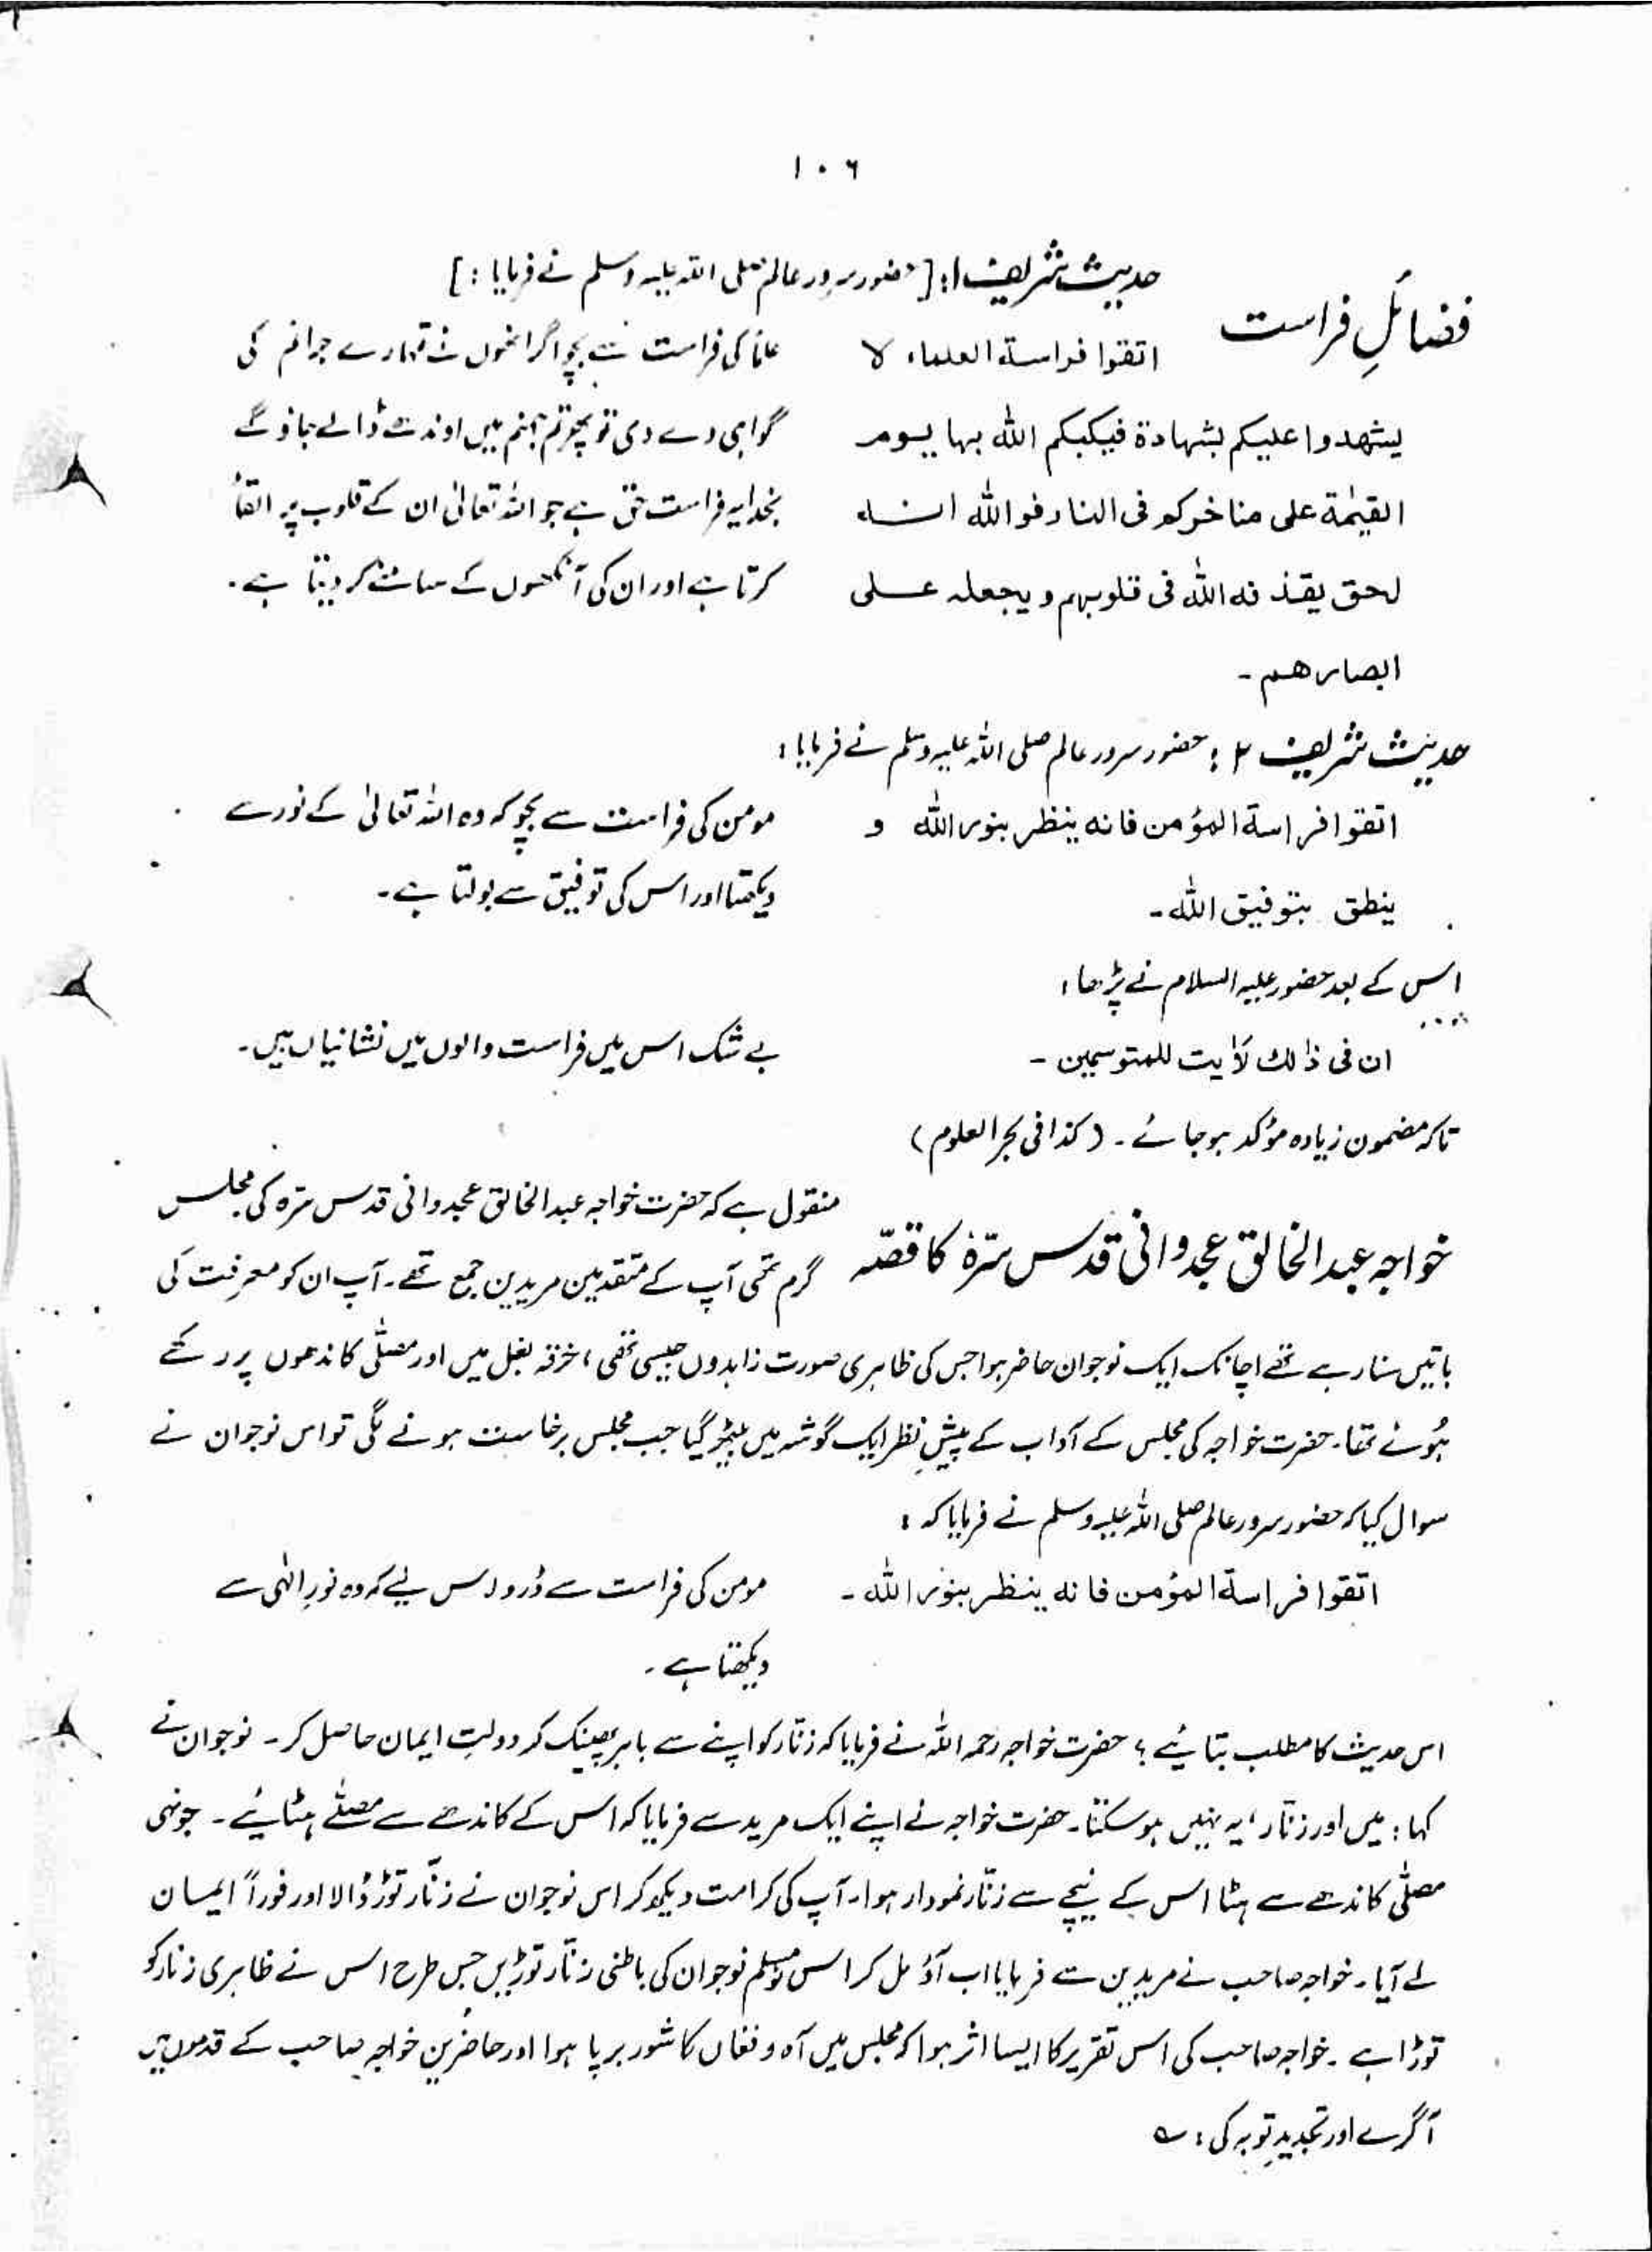 ۱۰۶
فضائلِ فراست
حدیث شریف ۱: [حضور سرور عالم صلی اللہ علیہ وسلم نے فرمایا:]
اتقوا فراسة العلماء لا
یشھدوا علیکم بشہادة فیکبکم اللہ بہا یوم
القیٰمة علی مناخرکم فی النار فواللہ انہ
لحق یقذفہ اللہ فی قلوبہم و یجعلہ علی
ابصارھم۔
علماء کی فراست سے بچو اگر انھوں نے تمہارے جرائم کی
گواہی دے دی تو پھر تم جہنم میں اوندھے ڈالے جاؤ گے
بخدا یہ فراست حق ہے جو اللہ تعالیٰ ان کے قلوب پر القأ
کرتا ہے اور ان کی آنکھوں کے سامنے کر دیتا ہے۔
حدیث شریف ۲: حضور سرور عالم صلی اللہ علیہ وسلم نے فرمایا:
اتقوا فراسة المؤمن فانہ ینظر بنور اللہ و
ینطق بتوفیق اللہ۔
مومن کی فراست سے بچو کہ وہ اللہ تعالیٰ کے نور سے
دیکھتا اور اس کی توفیق سے بولتا ہے۔
اس کے بعد حضور علیہ السلام نے پڑھا:
ان فی ذالک لَاٰیٰت للمتوسمین۔
بے شک اس میں فراست والوں میں نشانیاں ہیں۔
تاکہ مضمون زیادہ مؤکد ہو جائے۔ (کذا فی بحر العلوم)
خواجہ عبدالخالق عجدوانی قدس سرّہٗ کا قصّہ
منقول ہے کہ حضرت خواجہ عبدالخالق عجدوانی قدس سرّہ کی مجلس
گرم تھی آپ کے متقدمین مریدین جمع تھے۔ آپ ان کو معرفت کی
باتیں سنا رہے تھے اچانک ایک نوجوان حاضر ہوا جس کی ظاہری صورت زاہدوں جیسی تھی، خرقہ بغل میں اور مصلّٰی کاندھوں پر رکھے
ہُوئے تھا۔ حضرت خواجہ کی مجلس کے آداب کے پیشِ نظر ایک گوشہ میں بیٹھ گیا جب مجلس برخاست ہونے لگی تو اس نوجوان نے
سوال کیا کہ حضور سرور عالم صلی اللہ علیہ وسلم نے فرمایا کہ:
اتقوا فراسة المؤمن فانہ ینظر بنور اللہ۔
مومن کی فراست سے ڈرو اس لیے کہ وہ نورِ الٰہی سے
دیکھتا ہے۔
اس حدیث کا مطلب بتائیے؟ حضرت خواجہ رحمہ اللہ نے فرمایا کہ زنّار کو اپنے سے باہر پھینک کر دولتِ ایمان حاصل کر۔ نوجوان نے
کہا: میں اور زنّار، یہ نہیں ہو سکتا۔ حضرت خواجہ نے اپنے ایک مرید سے فرمایا کہ اس کے کاندھے سے مصلّٰے ہٹائیے۔ جونہی
مصلّٰی کاندھے سے ہٹا اس کے نیچے سے زنّار نمودار ہوا۔ آپ کی کرامت دیکھ کر اس نوجوان نے زنّار توڑ ڈالا اور فوراً ایمان
لے آیا۔ خواجہ صاحب نے مریدین سے فرمایا اب آؤ مل کر اس نومسلم نوجوان کی باطنی زنّار توڑیں جس طرح اس نے ظاہری زنار کو
توڑا ہے۔ خواجہ صاحب کی اس تقریر کا ایسا اثر ہوا کہ مجلس میں آہ و فغاں کا شور برپا ہوا اور حاضرین خواجہ صاحب کے قدموں میں
آ گرے اور تجدیدِ توبہ کی: ؎